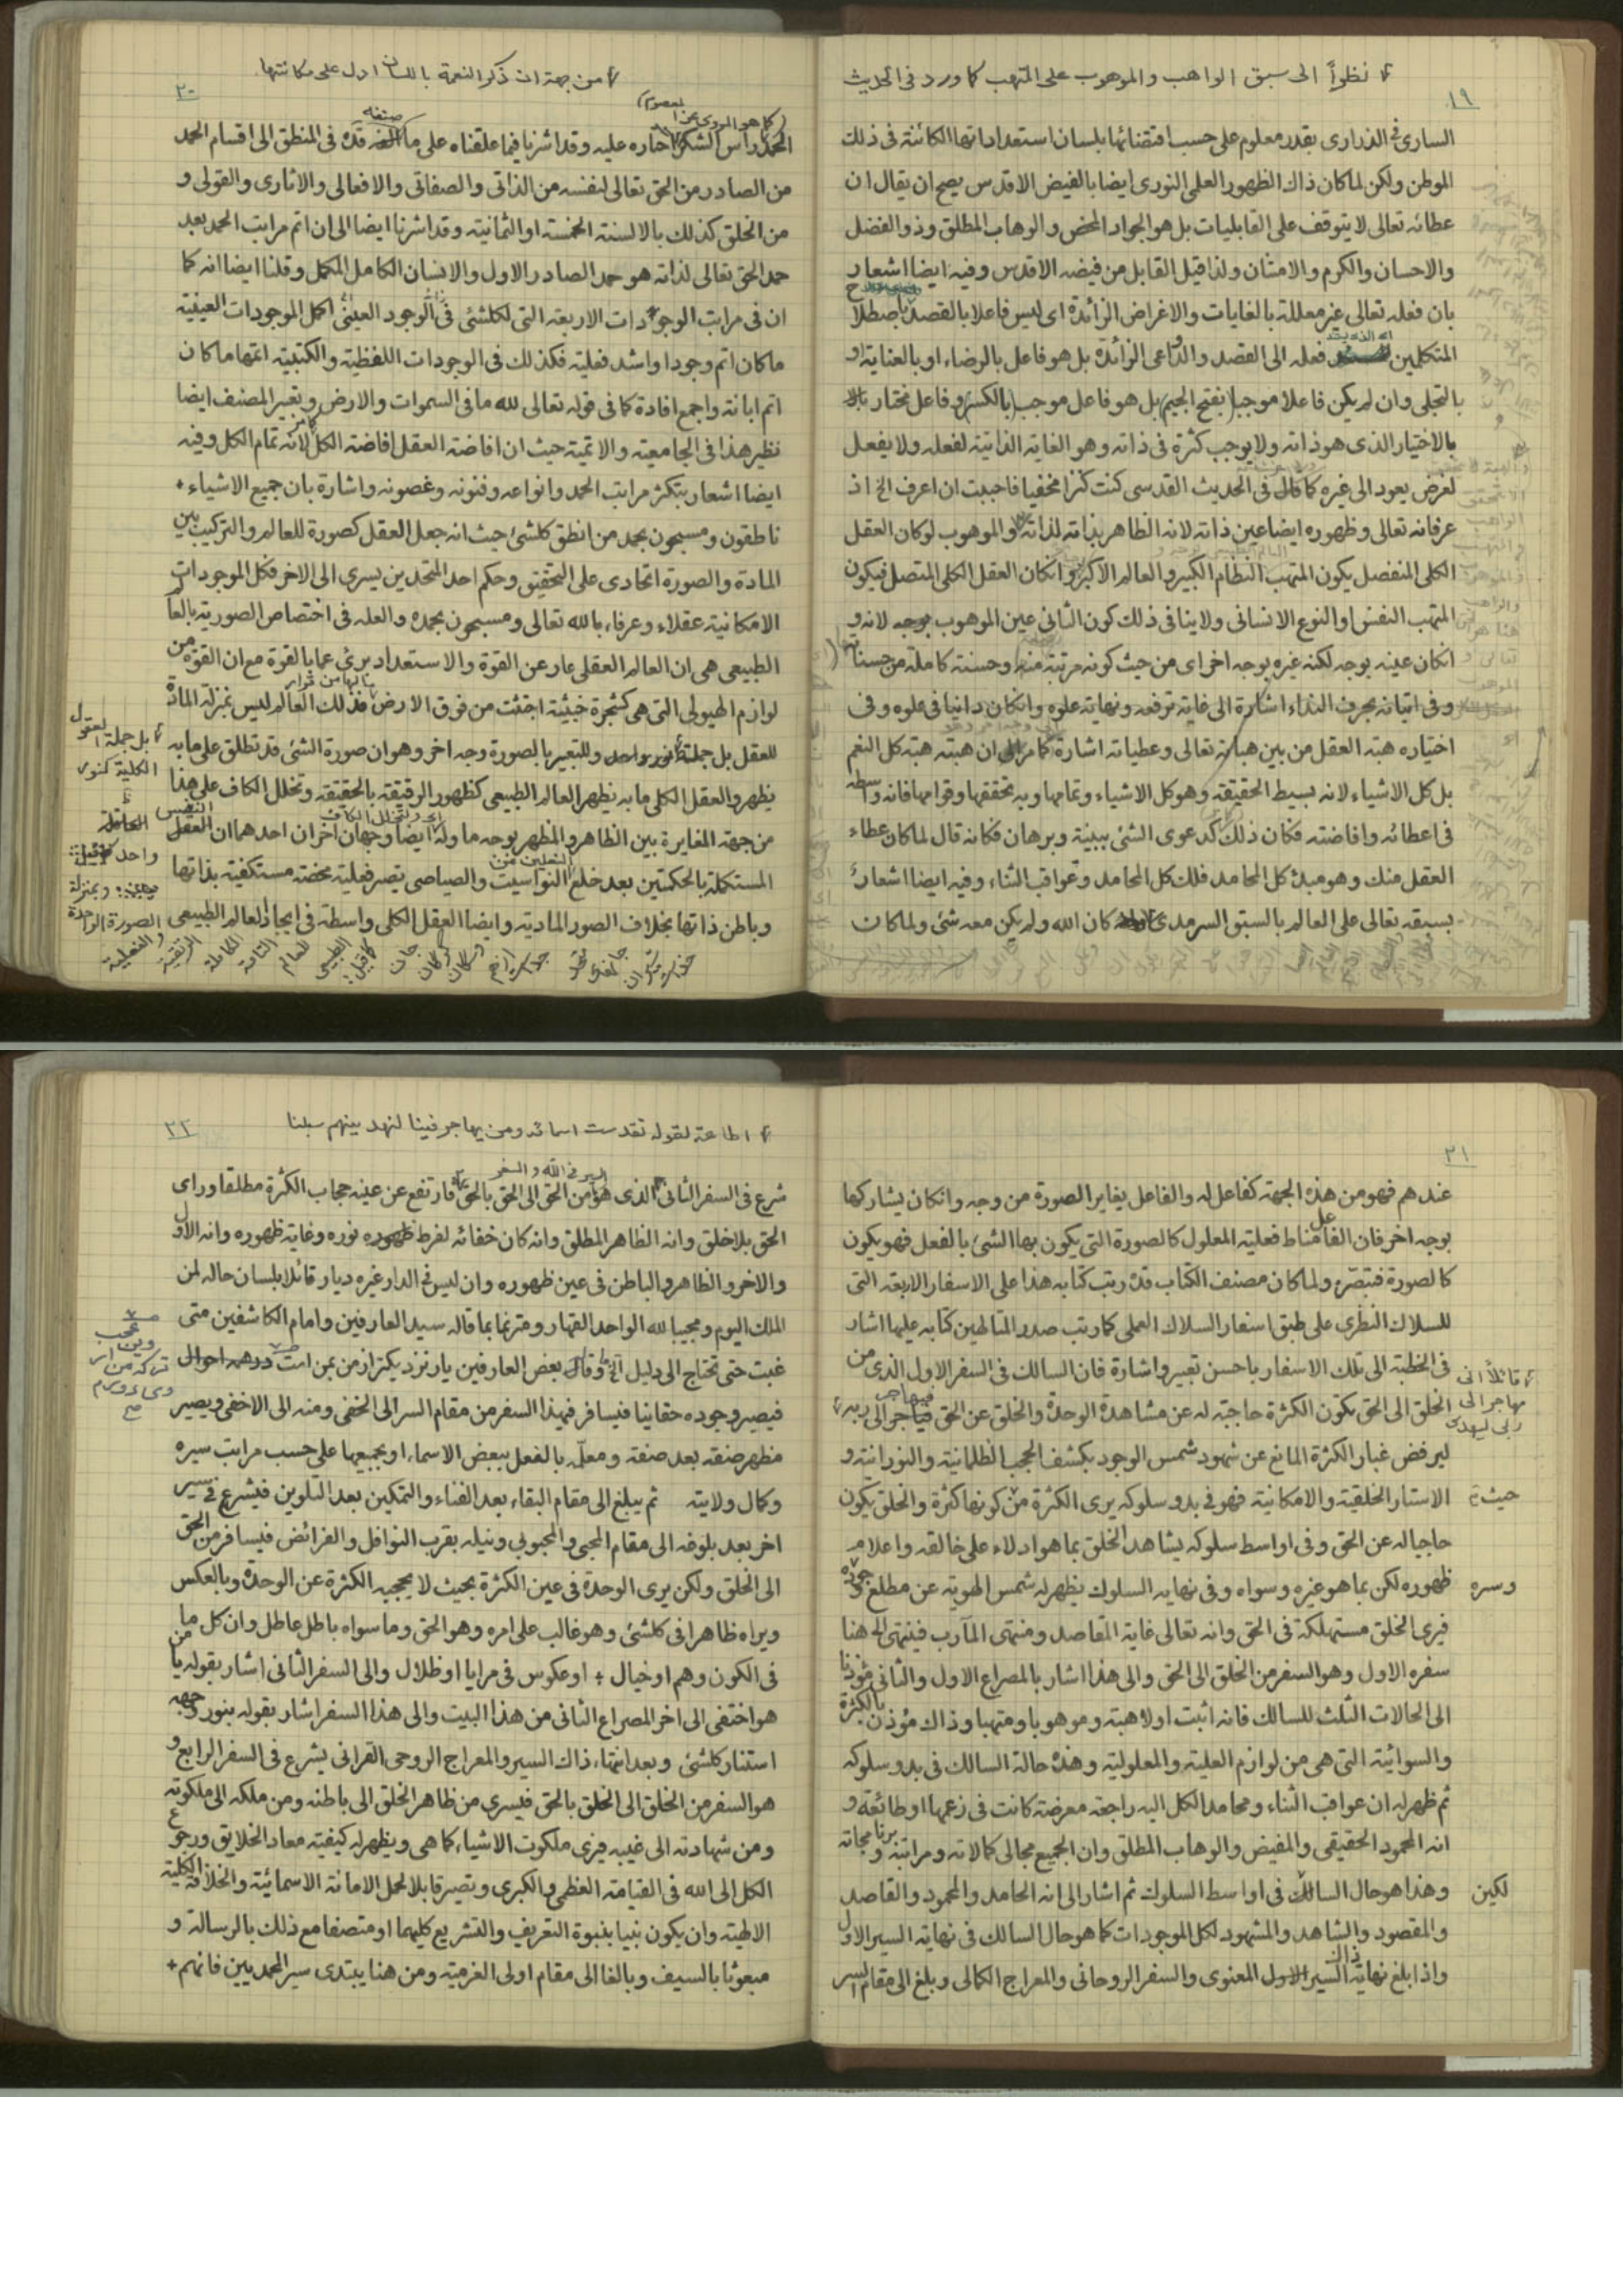 نظراً الى سبق الواهب والموهوب على المتهب كما ورد فى الحديث
١٩
السارى فى الذرارى بقدر معلوم على حسب اقتضائها بلسان استعداداتها الكائنة فى ذلك
الموطن ولكن لما كان ذاك الظهور العلمى النورى ايضا بالفيض الاقدس يصح ان يقال ان
عطائه تعالى لا يتوقف على القابليات بل هو الجواد المحض والوهاب المطلق وذو الفضل
والاحسان والكرم والامتنان ولذا قيل القابل من فيضه الاقدس وفيه ايضا اشعار
بان فعله تعالى غير معللة بالغايات والاغراض الزائدة اى ليس فاعلا بالقصد باصطلاح
المتكلمين فعله الى القصد والداعى الزائدة بل هو فاعل بالرضاء او بالعناية او
بالتجلى وان لم يكن فاعلا موجبا (بفتح الجيم) بل هو فاعل موجب (بالكسر) وفاعل مختار
بالاختيار الذى هو ذاته ولا يوجب كثرة فى ذاته وهو الغاية الذاتية لفعله ولا يفعل
لغرض يعود الى غيره كما قال فى الحديث القدسى كنت كنزا مخفيا فاحببت ان اعرف الخ اذ
عرفانه تعالى وظهوره ايضا عين ذاته لانه الظاهر بذاته لذاته والموهوب لو كان العقل
الكلى المنفصل يكون المتهب النظام الكبير والعالم الاكبر وانكان العقل الكلى المتصل فيكون
المتهب النفس او النوع الانسانى ولا ينافى ذلك كون الثانى عين الموهوب بوجه لانه و
انكان عينه بوجه لكنه غيره بوجه اخر اى من حيث كونه مرتبة منه وحسنة كاملة من حسناته
وفى اتيانه بحرف النداء اشارة الى غاية ترفعه ونهاية علوه وانكان دانيا فى علوه وفى
اختياره هبة العقل من بين هباته تعالى وعطياته اشارة كما مر الى ان هبته هبة كل النعم
بل كل الاشياء لانه بسيط الحقيقة وهو كل الاشياء وتمامها وبه تحققها وقوامها فانه واسطة
فى اعطائه وافاضته فكان ذلك كدعوى الشئ ببينة وبرهان فكانه قال لما كان عطاء
العقل منك وهو مبدء كل المحامد فلك كل المحامد وعواقب الثناء وفيه ايضا اشعار
بسبقه تعالى على العالم بالسبق السرمدى كان الله ولم يكن معه شئ ولما كان
من جهة ان ذكر النعمة باللسان ادل على مكانتها
٢٠
كما هو المروى عن المعصوم
الحمد راس الشكر اختاره عليه وقد اشرنا فيما علقناه على ما صنفه قده فى المنطق الى اقسام الحمد
من الصادر من الحق تعالى لنفسه من الذاتى والصفاتى والافعالى والاثارى والقولى و
من الخلق كذلك بالالسنة الخمسة او الثمانية وقد اشرنا ايضا الى ان اتم مراتب الحمد بعد
حمد الحق تعالى لذاته هو حمد الصادر الاول والانسان الكامل المكمل وقلنا ايضا انه كما
ان فى مراتب الوجودات الاربعة التى لكلشئ فى الوجود العينى اكمل الموجودات العينية
ما كان اتم وجودا واشد فعلية فكذلك فى الوجودات اللفظية والكتبية اتمها ما كان
اتم ابانة واجمع افادة كما فى قوله تعالى لله ما فى السموات والارض وتعبير المصنف ايضا
نظير هذا فى الجامعية والاتمية حيث ان افاضة العقل افاضة الكل لانه تمام الكل وفيه
ايضا اشعار بتكثر مراتب الحمد وانواعه وفنونه وغصونه واشارة بان جميع الاشياء +
ناطقون ومسبحون بحمد من انطق كلشئ حيث انه جعل العقل كصورة للعالم والتركيب بين
المادة والصورة اتحادى على التحقيق وحكم احد المتحدين يسرى الى الاخر فكل الموجودات
الامكانية عقلاء وعرفاء بالله تعالى ومسبحون بحمده والعلة فى اختصاص الصورية بالعالم
الطبيعى هى ان العالم العقلى عار عن القوة والاستعداد برئ عما بالقوة مع ان القوة من
لوازم الهيولى التى هى كشجرة خبيثة اجتثت من فوق الارض مالها من قرار فذلك العالم ليس بمنزلة المادة
للعقل بل جملة نور واحد وللتعبير بالصورة وجه اخر وهو ان صورة الشئ قد تطلق على ما به
يظهر والعقل الكلى ما به يظهر العالم الطبيعى كظهور الرقيقة بالحقيقة وتخلل الكاف على هذا
من جهة المغايرة بين الظاهر والمظهر بوجه ما وله ايضا وجهان اخران احدهما ان العقل
المستكملة بالحكمتين بعد خلع النواسيت والصياصى تصير فعلية محضة مستكفية بذاتها
وباطن ذاتها بخلاف الصور المادية وايضا العقل الكلى واسطة فى ايجاد العالم الطبيعى
بل جملة العقول
الكلية كنور
واحد
وبمنزلة
الصورة الواحدة
٢١
عندهم فهو من هذه الجهة كفاعل له والفاعل يغاير الصورة من وجه وانكان يشاركها
بوجه اخر فان الفاعل مناط فعلية المعلول كالصورة التى يكون بها الشئ بالفعل فهو يكون
كالصورة فتبصر ولما كان مصنف الكتاب قده رتب كتابه هذا على الاسفار الاربعة التى
للسلاك النظرى على طبق اسفار السلاك العملى كما رتب صدر المتالهين كتابه عليها اشار
فى الخطبة الى تلك الاسفار باحسن تعبير واشارة فان السالك فى السفر الاول الذى من
الخلق الى الحق تكون الكثرة حاجبة له عن مشاهدة الوحدة والخلق عن الحق فيهاجر الى ربه
ليرفض غبار الكثرة المانع عن شهود شمس الوجود بكشف الحجب الظلمانية والنورانية و
الاستار الخلقية والامكانية فهو فى بدو سلوكه يرى الكثرة من حيث كونها كثرة والخلق يكون
حاجبا له عن الحق وفى اواسط سلوكه يشاهد الخلق بما هو ادلاء على خالقه واعلام
ظهوره لكن بما هو غيره وسواه وفى نهاية السلوك يظهر له شمس الهوية عن مطلع وجوده وسره
فيرى الخلق مستهلكة فى الحق وانه تعالى غاية المقاصد ومنتهى المآرب فينتهى الى هنا
سفره الاول وهو السفر من الخلق الى الحق والى هذا اشار بالمصراع الاول والثانى مؤذنا
الى الحالات الثلث للسالك فانه اثبت اولا هبة وموهوبا ومتهبا وذاك مؤذن بالكثرة
والسوائية التى هى من لوازم العلية والمعلولية وهذه حالة السالك فى بدو سلوكه
ثم ظهر له ان عواقب الثناء ومحامد الكل اليه راجعة معرضة كانت فى زعمها او طائعة و
انه المحمود الحقيقى والمفيض والوهاب المطلق وان الجميع مجالى كمالاته ومراتبه
وهذا هو حال السالكين فى اواسط السلوك ثم اشار الى انه الحامد والمحمود والقاصد
والمقصود والشاهد والمشهود لكل الموجودات كما هو حال السالك فى نهاية السير الاول
واذا بلغ نهاية ذاك السير المعنوى والسفر الروحانى والمعراج الكمالى وبلغ الى مقام السر
قائلاً انى
مهاجر الى
ربى ليهدى
اطاعة لقوله تقدست اسمائه ومن يهاجر فينا لنهدينهم سبلنا
٢٢
شرع فى السفر الثانى الذى هو السير فى الله والسفر من الحق الى الحق بالحق فارتفع عن عينه حجاب الكثرة مطلقا وراى
الحق بلا خلق وانه الظاهر المطلق وانه كان خفائه لفرط نوره وغاية ظهوره وانه الاول
والاخر والظاهر والباطن فى عين ظهوره وان ليس فى الدار غيره ديار قائلا بلسان حاله لمن
الملك اليوم ومجيبا لله الواحد القهار ومترنما بما قاله سيد العارفين وامام الكاشفين متى
غبت حتى تحتاج الى دليل الخ وقال بعض العارفين يار نزديكتر از من بمن است
فيصير وجوده حقانيا فيسافر فبهذا السفر من مقام السر الى الخفى ومنه الى الاخفى ويصير
مظهر صفة بعد صفة ومعلّم بالفعل ببعض الاسماء او بجميعها على حسب مراتب سيره
وكمال ولايته ثم يبلغ الى مقام البقاء بعد الفناء والتمكين بعد التلوين فيشرع فى سير
اخر بعد بلوغه الى مقام المحبى والمحبوبى ونيله بقرب النوافل والفرائض فيسافر من الحق
الى الخلق ولكن يرى الوحدة فى عين الكثرة بحيث لا يحجبه الكثرة عن الوحدة وبالعكس
ويراه ظاهرا فى كلشئ وهو غالب على امره وهو الحق وما سواه باطل عاطل وان كل ما
فى الكون وهم او خيال + او عكوس فى مرايا او ظلال والى السفر الثانى اشار بقوله يا من
هو اختفى الى اخر المصراع الثانى من هذا البيت والى هذا السفر اشار بقوله بنور وجهه
استنار كلشئ وبعد انتهاء ذاك السير والمعراج الروحى القرانى يشرع فى السفر الرابع و
هو السفر من الخلق الى الخلق بالحق فيسرى من ظاهر الخلق الى باطنه ومن ملكه الى ملكوته
ومن شهادته الى غيبه فيرى ملكوت الاشياء كما هى ويظهر له كيفية معاد الخلايق ورجوع
الكل الى الله فى القيامة العظمى والكبرى وتصير قابلا لحمل الامانة الاسمائية والخلافة الكلية
الالهية وان يكون نبيا بنبوة التعريف والتشريع كليهما او متصفا مع ذلك بالرسالة و
مبعوثا بالسيف وبالغا الى مقام اولى العزمية ومن هنا يبتدى سير المحمديين فانهم +